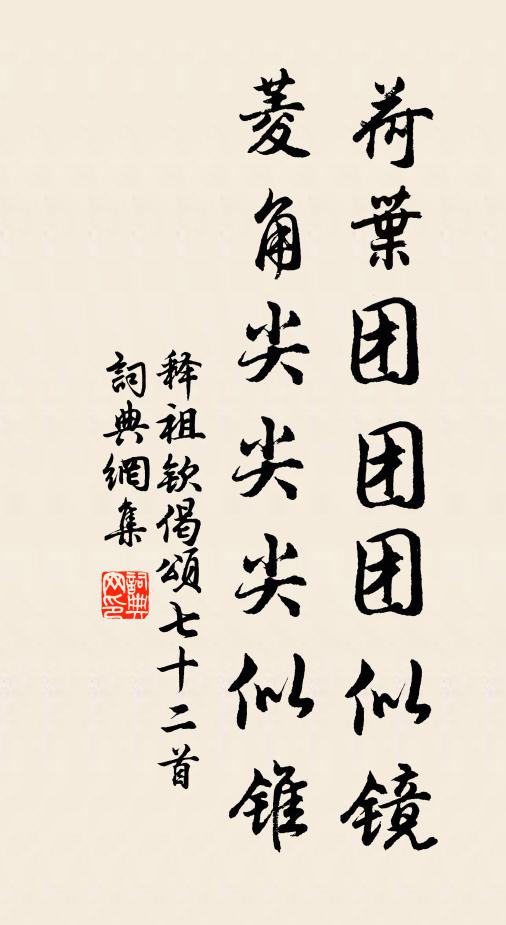 荷葉团团团似镜
菱角尖尖尖似锥
释祖钦偈頌七十二首
詞典網集
詞典网印